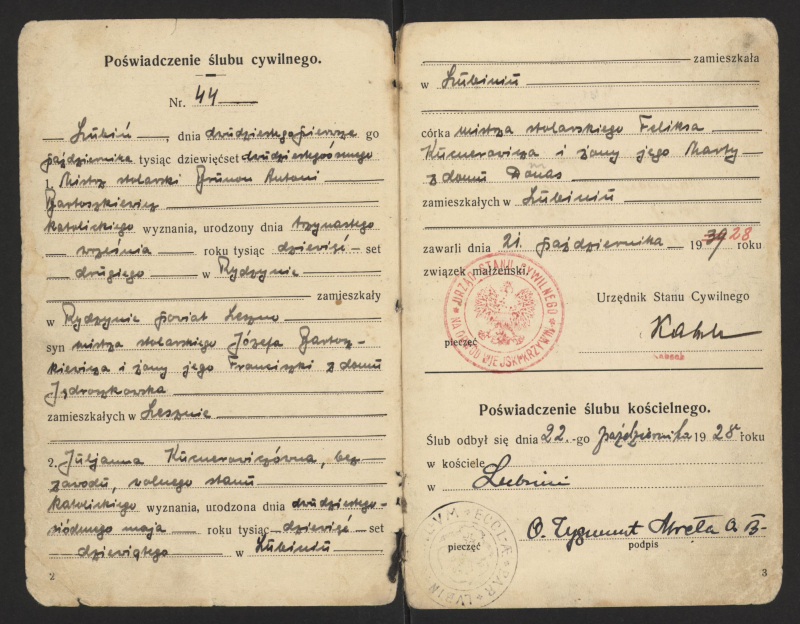 Poświadczenie ślubu cywilnego.
Nr. 44
Lubiń, dnia dwudziestego pierwszego
października tysiąc dziewięćset dwudziestego ósmego
1. Mistrz stolarski Brunon Antoni
Bartoszkiewicz
katolickiego wyznania, urodzony dnia trzynastego
września roku tysiąc dziewięć-set
drugiego w Rydzynie
zamieszkały
w Rydzynie powiat Leszno
syn mistrza stolarskiego Józefa Bartosz-
kiewicza i żony jego Franciszki z domu
zamieszkałych w Lesznie
2. Juljanna Kucnerowiczówna, bez
zawodu, wolnego stanu
katolickiego wyznania, urodzona dnia dwudziestego-
siódmego maja roku tysiąc dziewięć-set
dziewiątego w Lubiniu
2
zamieszkała
w Lubiniu
córka mistrza stolarskiego Feliksa
Kucnerowicza i żony jego Marty
z domu Danas
zamieszkałych w Lubiniu
zawarli dnia 21. października 1939 28 roku
związek małżeński
URZĄD STANU CYWILNEGO
Urzędnik Stanu Cywilnego
pieczęć
Poświadczenie ślubu kościelnego.
Ślub odbył się dnia 22.-go października 1928 roku
w kościele
w Lubiniu
O. Zygmunt
pieczęć
podpis
3